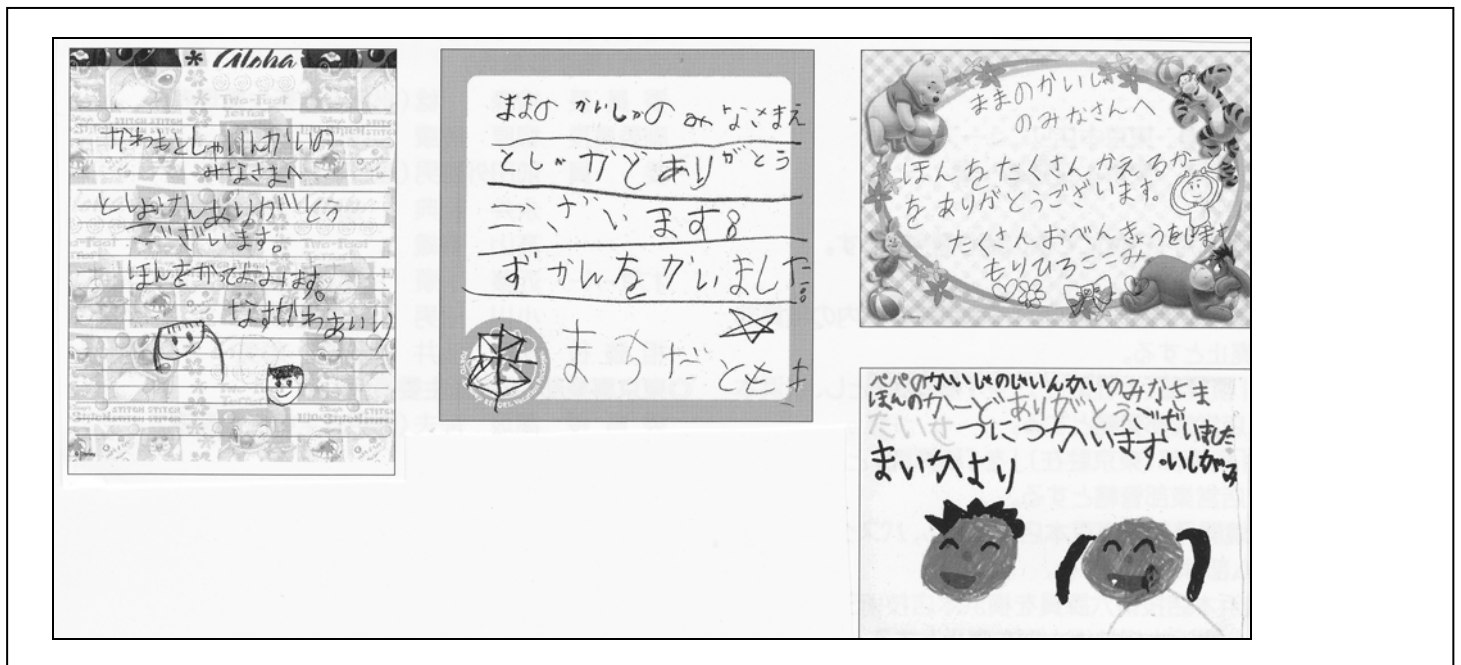 Aloha
かわもとしゃいんかいの
みなさまへ
としょけんありがとう
ございます。
ほんをかってよみます。
なすかわあいり
ままの かいしゃの みなさまえ
としょかどありがとう
ございます。
ずかんをかいました。
まちだ ともき
ままのかいしゃ
のみなさんへ
ほんをたくさんかえるかーど
をありがとうございます。
たくさんおべんきょうをします
もりひろここみ
パパのかいしゃのしゃいんかいのみなさま
ほんのカードありがとうございました。
たいせつにつかいます。いしがみ
まいかより